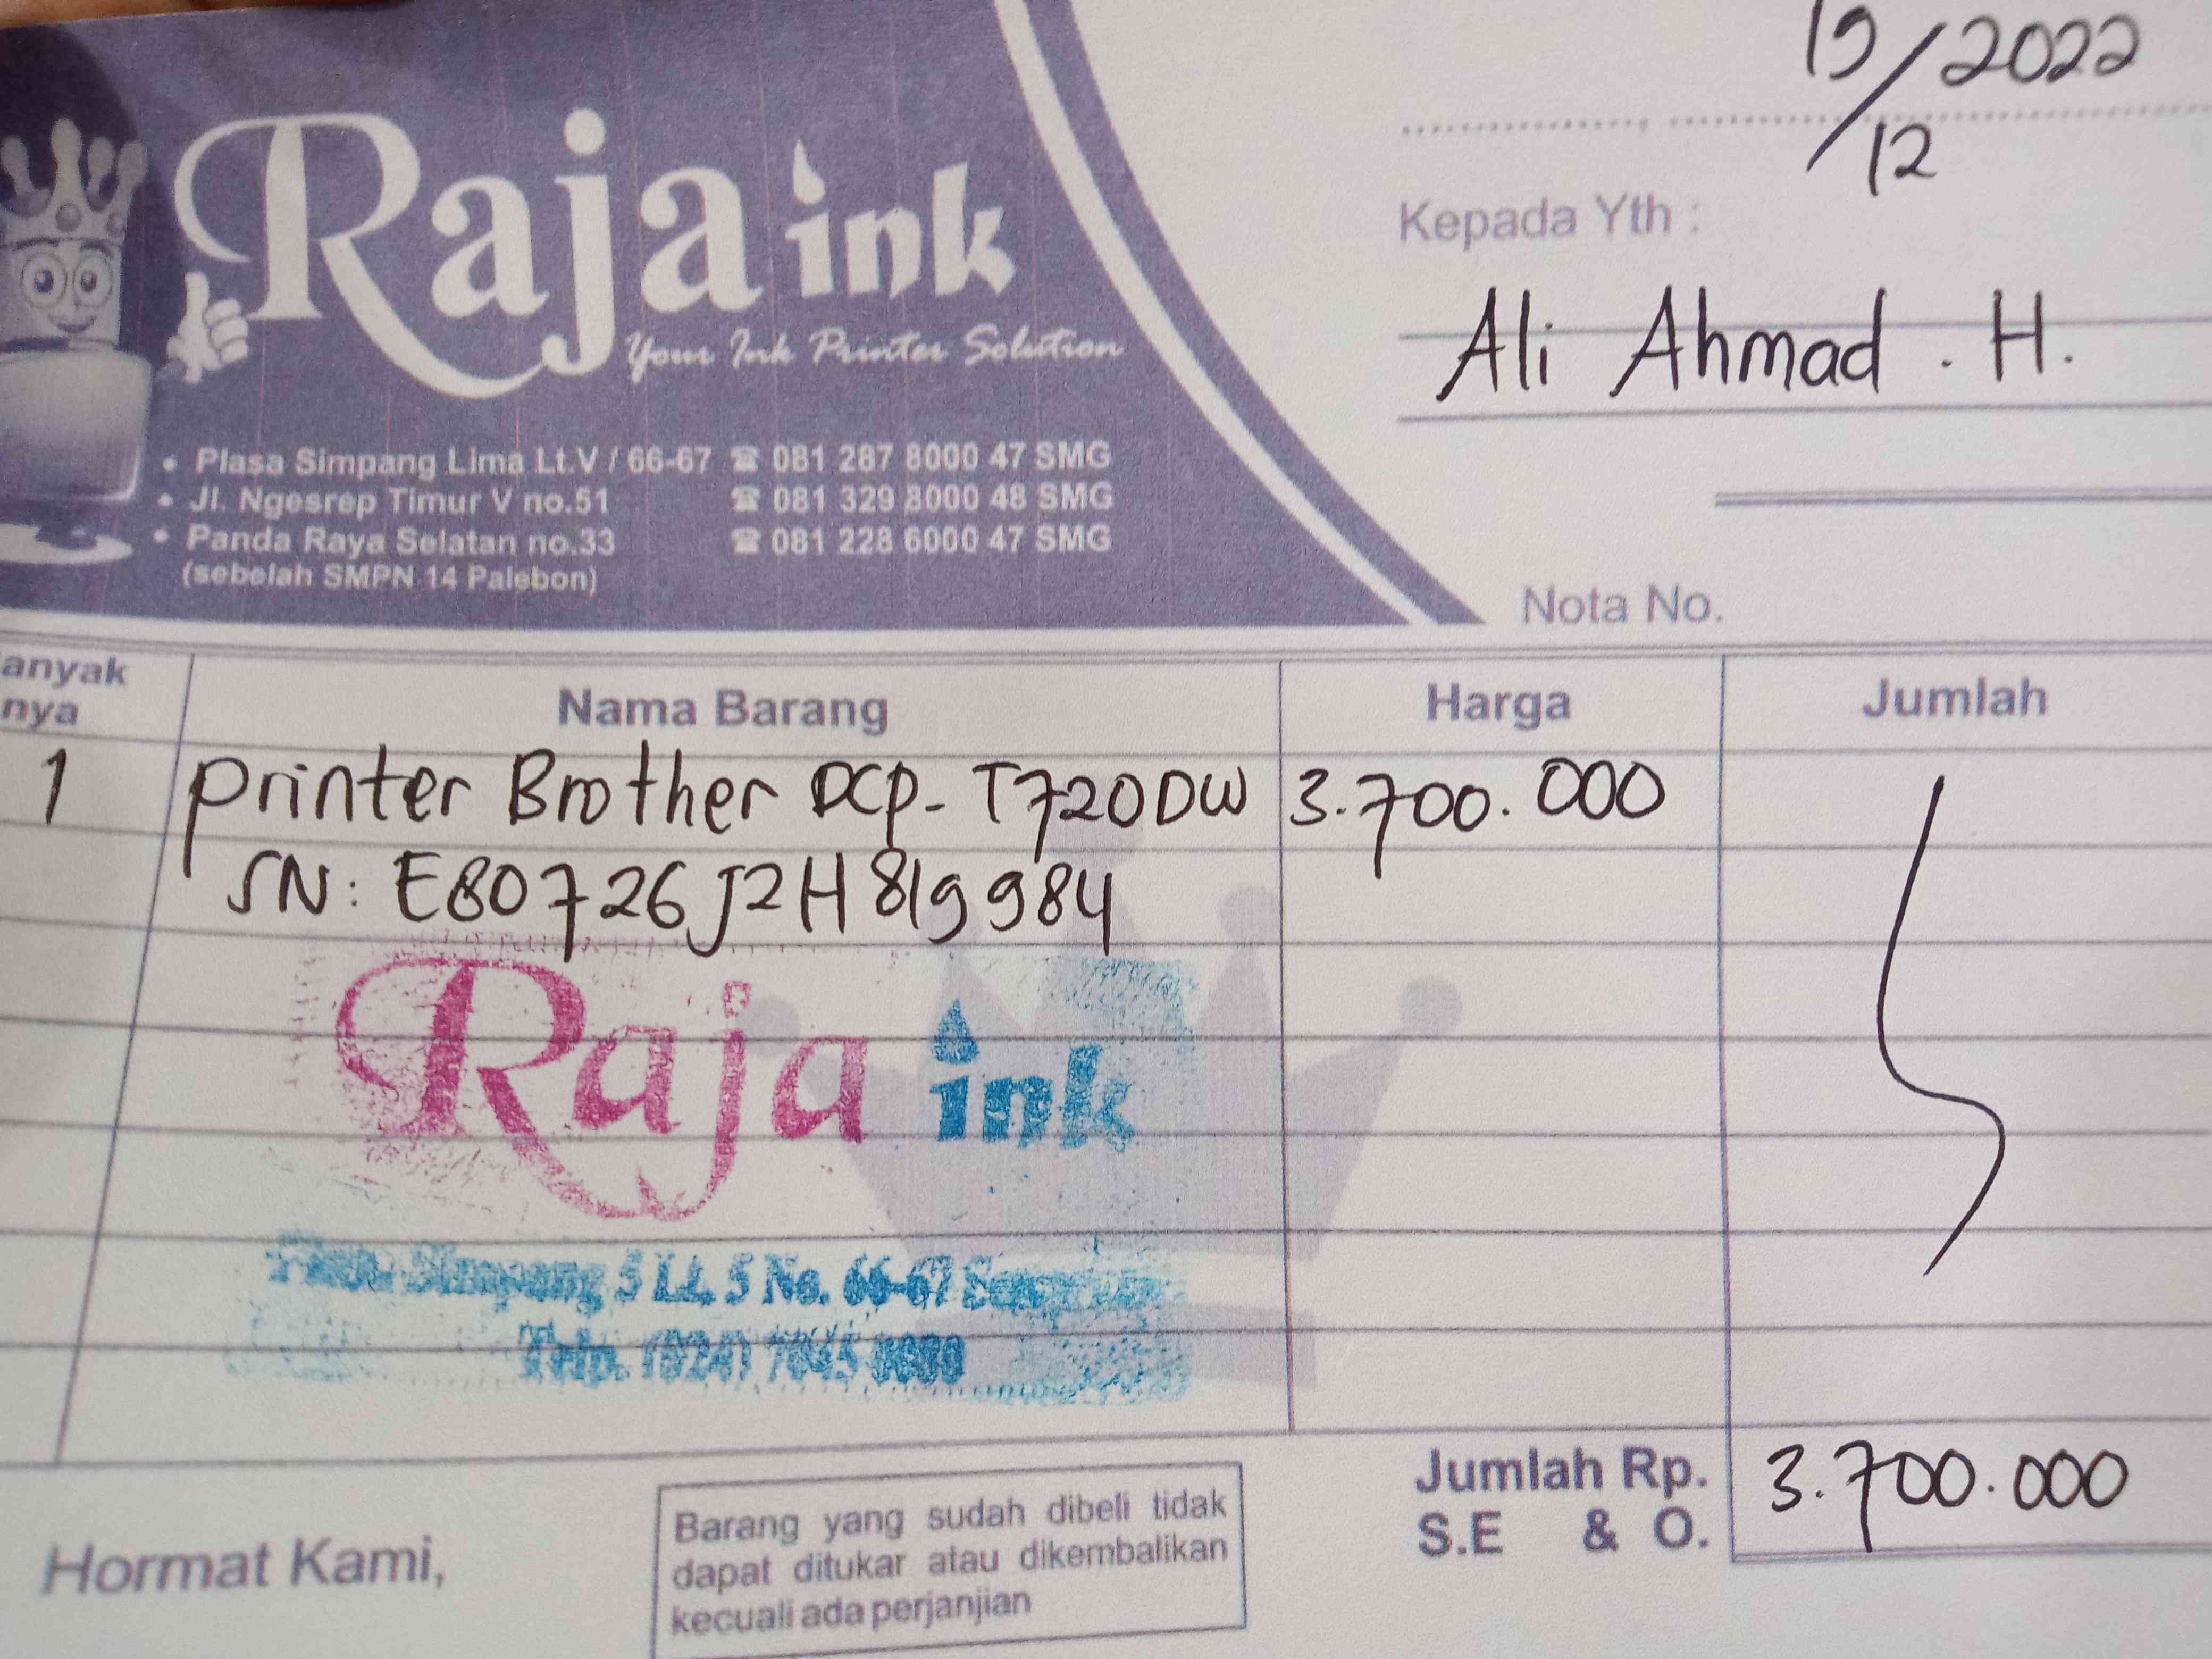 19/12 2022
Raja ink
Your Ink Printer Solution
Kepada Yth :
Ali Ahmad . H.
• Plasa Simpang Lima Lt.V / 66-67 ☎ 081 287 8000 47 SMG
• Jl. Ngesrep Timur V no.51 ☎ 081 329 8000 48 SMG
• Panda Raya Selatan no.33 ☎ 081 228 6000 47 SMG
(sebelah SMPN 14 Palebon)
Nota No.
anyak
nya
Nama Barang Harga Jumlah
1 printer Brother DCP-T720DW 3.700.000
SN: E80726J2H819984
Raja ink
Simpang 5 Lt. 5 No. 66-67
Telp. (024)
Jumlah Rp. 3.700.000
S.E & O.
Hormat Kami,
Barang yang sudah dibeli tidak
dapat ditukar atau dikembalikan
kecuali ada perjanjian